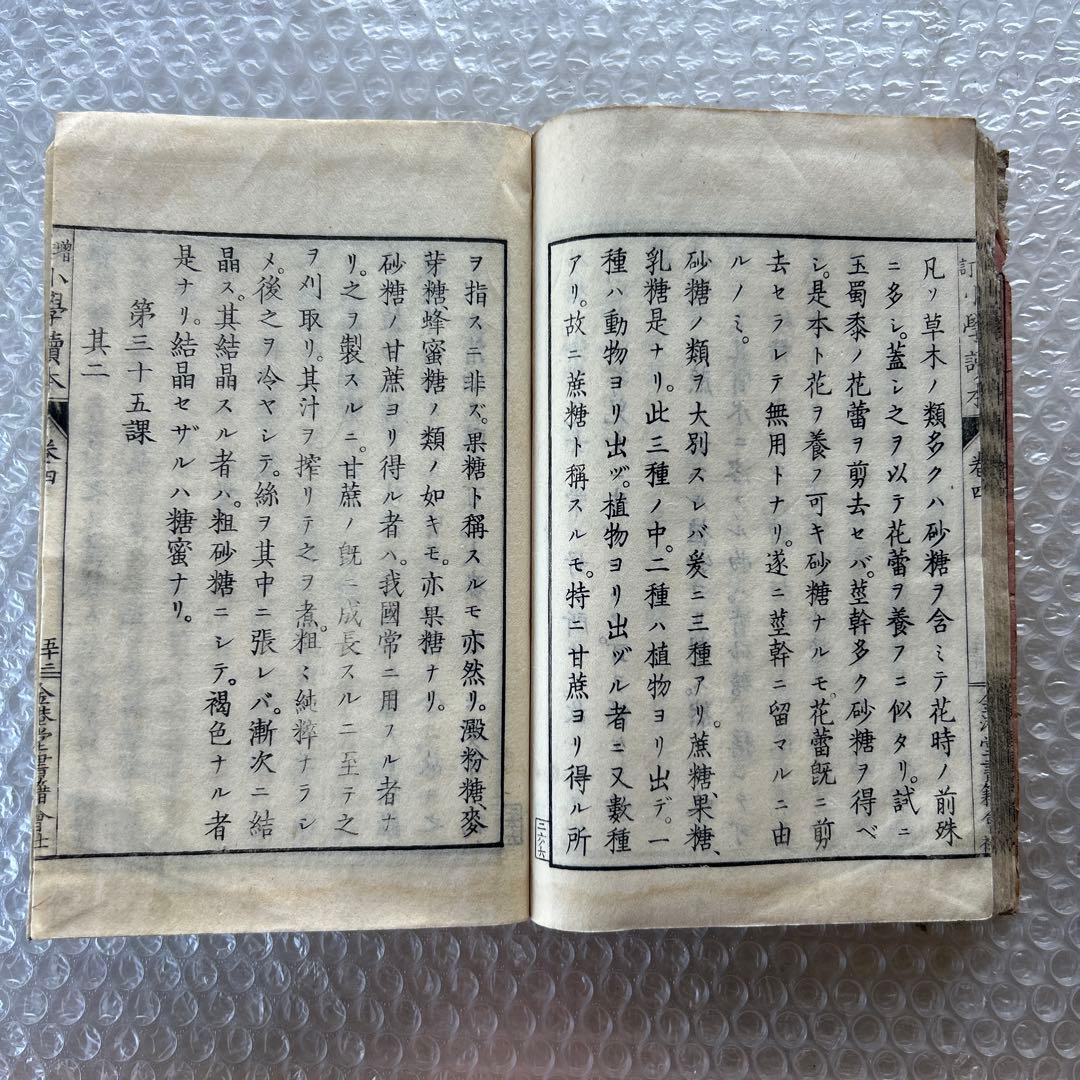 凡ソ草木ノ類多クハ砂糖ヲ含ミテ花時ノ前殊
ニ多シ。蓋シ之ヲ以テ花蕾ヲ養フニ似タリ。試ニ
玉蜀黍ノ花蕾ヲ剪去セバ。莖幹多ク砂糖ヲ得ベ
シ。是本ト花ヲ養フ可キ砂糖ナルモ。花蕾旣ニ剪
去セラレテ無用トナリ。遂ニ莖幹ニ留マルニ由
ルノミ。
砂糖ノ類ヲ大別スレバ爰ニ三種アリ。蔗糖、果糖、
乳糖是ナリ。此三種ノ中。二種ハ植物ヨリ出デ。一
種ハ動物ヨリ出ヅ。植物ヨリ出ヅル者ニ又數種
アリ。故ニ蔗糖ト稱スルモ。特ニ甘蔗ヨリ得ル所
三六六
ヲ指スニ非ズ。果糖ト稱スルモ亦然リ。澱粉糖、麥
芽糖蜂蜜糖ノ類ノ如キモ。亦果糖ナリ。
砂糖ノ甘蔗ヨリ得ル者ハ。我國常ニ用フル者ナ
リ。之ヲ製スルニ。甘蔗ノ旣ニ成長スルニ至テ之
ヲ刈取リ。其汁ヲ搾リテ之ヲ煮。粗ミ純粹ナラシ
メ。後之ヲ冷ヤシテ。絲ヲ其中ニ張レバ。漸次ニ結
晶ス。其結晶スル者ハ。粗砂糖ニシテ。褐色ナル者
是ナリ。結晶セザルハ糖蜜ナリ。
第三十五課
其二
增
小學讀本
卷四